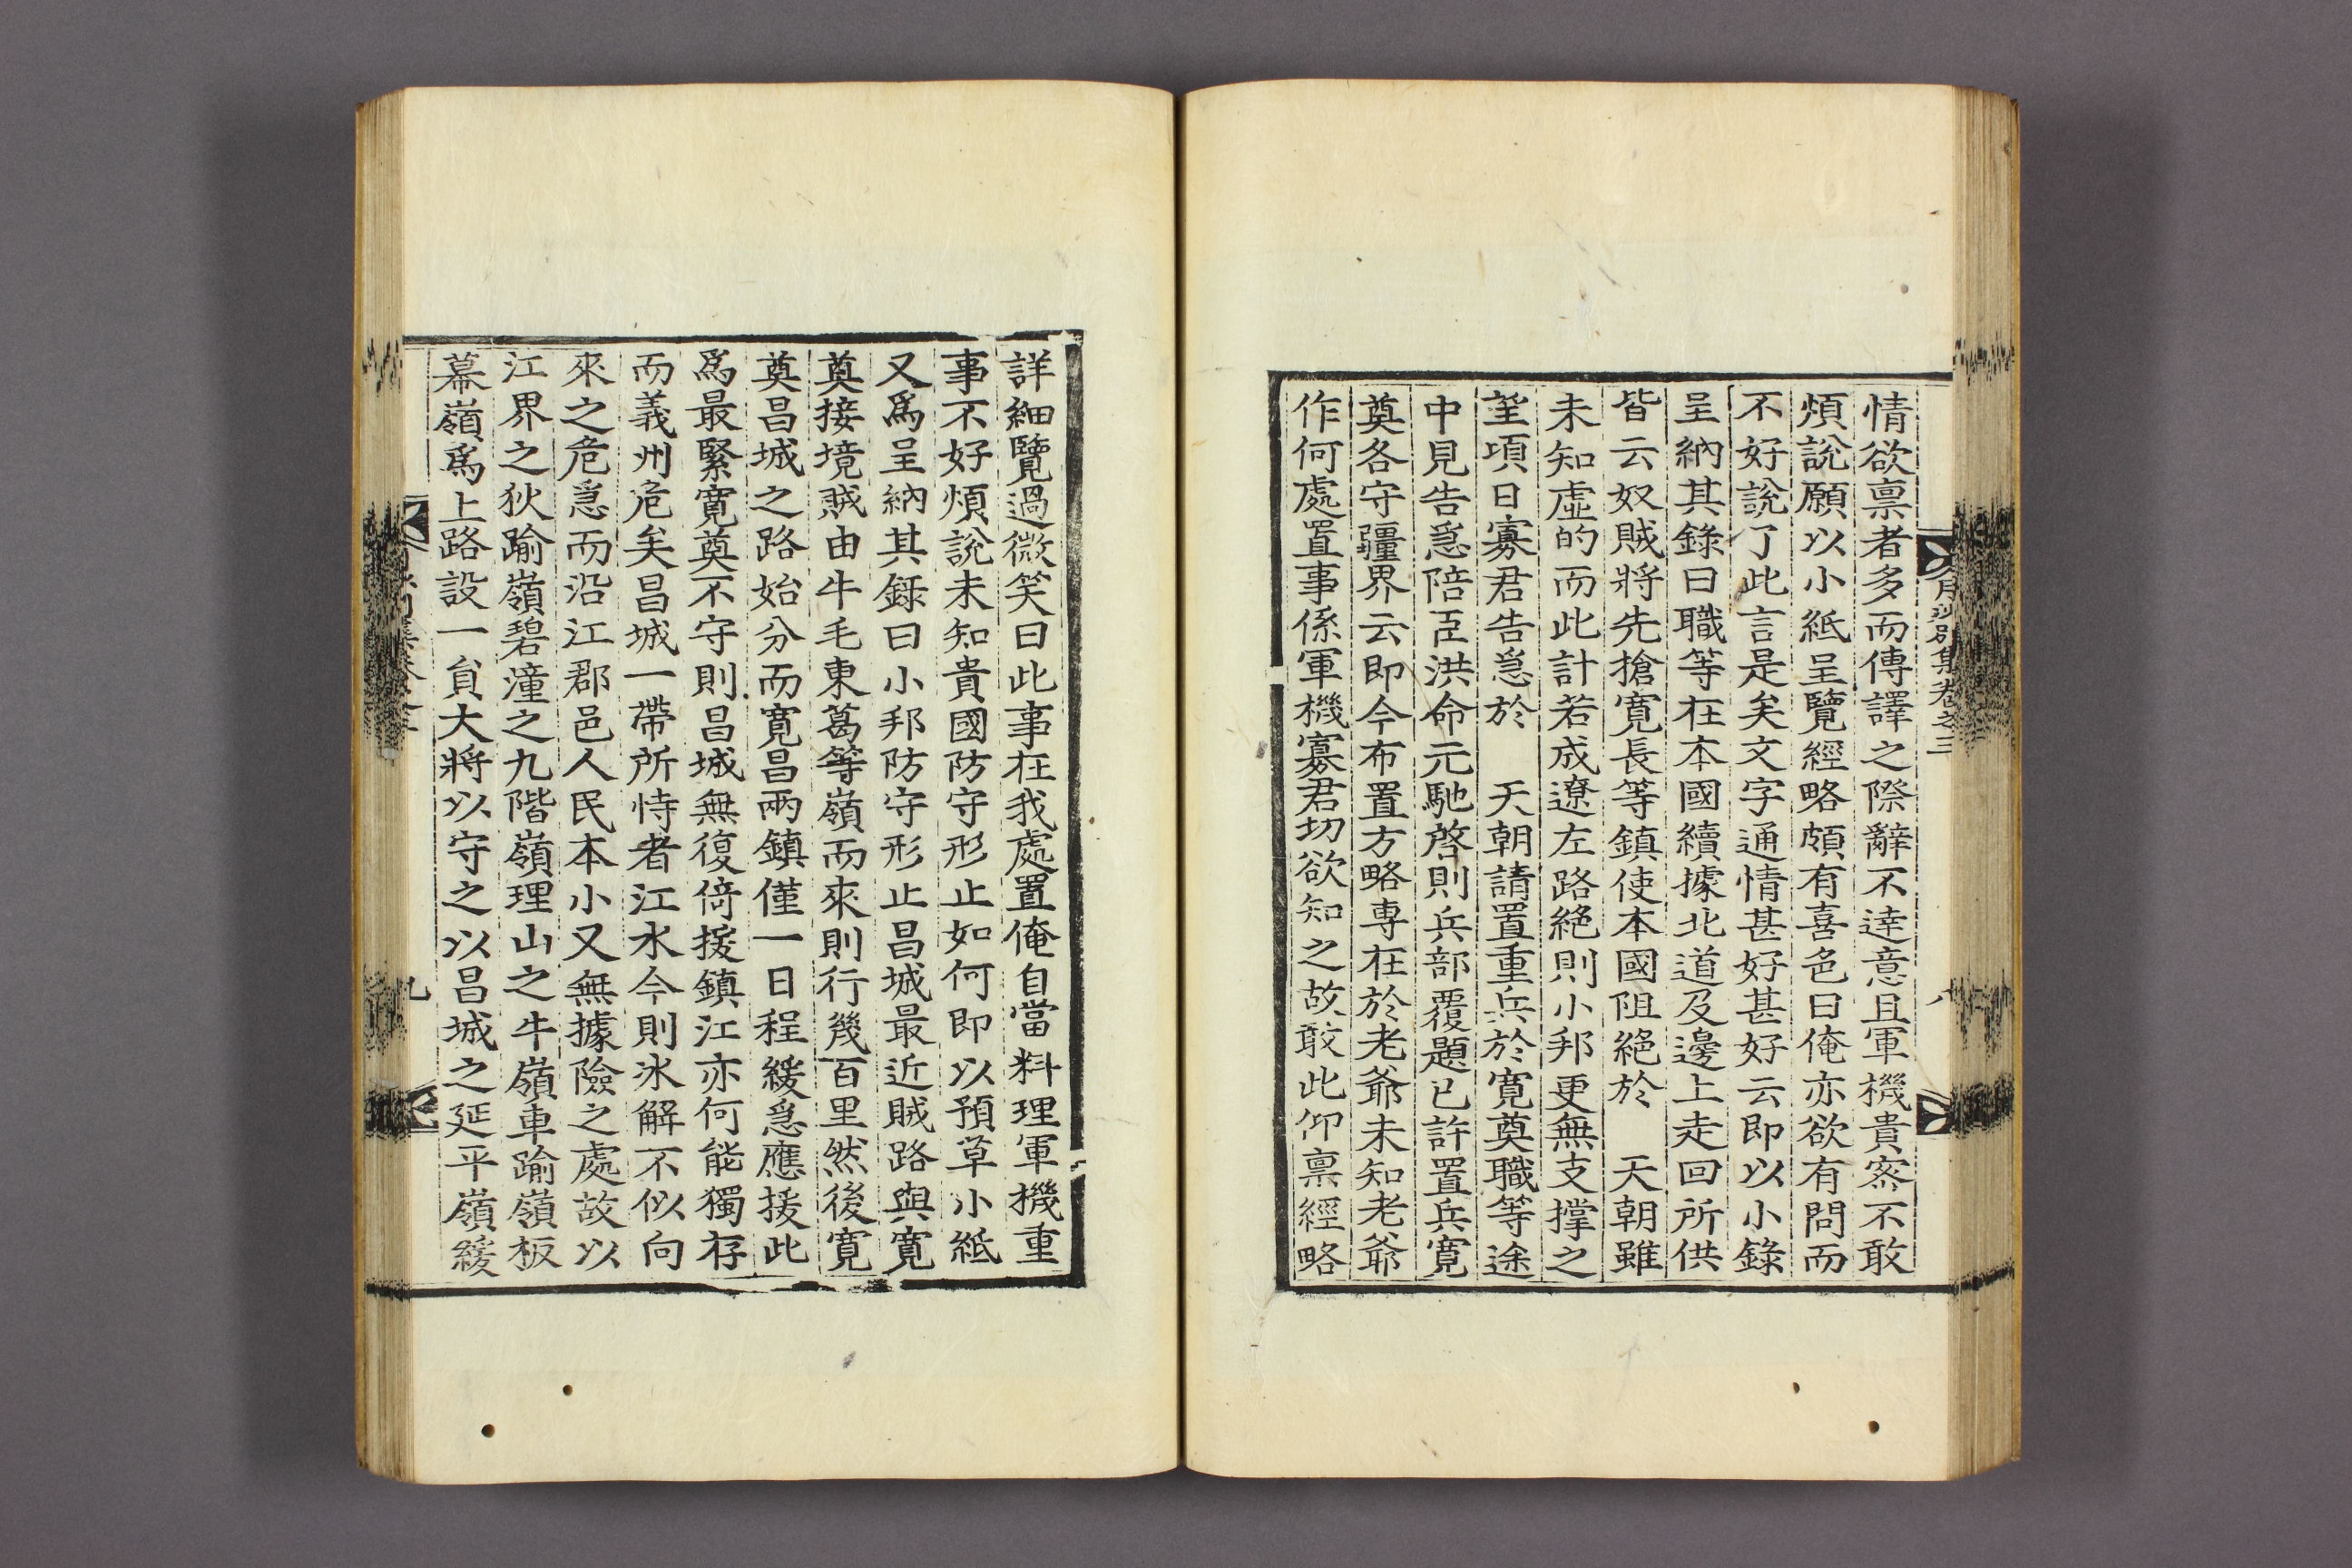 月沙別集卷之三
八
情欲禀者多而傳譯之際辭不達意且軍機貴宻不敢
煩說願以小紙呈覽經略頗有喜色曰俺亦欲有問而
不好說了此言是矣文字通情甚好甚好云即以小錄
呈納其錄曰職等在本國續據北道及邊上走回所供
皆云奴賊將先搶寛長等鎮使本國阻絕於 天朝雖
未知虛的而此計若成遼左路絕則小邦更無支撑之
望項日寡君告急於 天朝請置重兵於寛奠職等途
中見告急陪臣洪命元馳啓則兵部覆題已許置兵寛
奠各守疆界云即今布置方略專在於老爺未知老爺
作何處置事係軍機寡君切欲知之故敢此仰禀經略
詳細覽過微笑曰此事在我處置俺自當料理軍機重
事不好煩說未知貴國防守形止如何即以預草小紙
又爲呈納其錄曰小邦防守形止昌城最近賊路與寛
奠接境賊由牛毛東葛等嶺而來則行幾百里然後寛
奠昌城之路始分而寛昌兩鎮僅一日程緩急應援此
爲最緊寛奠不守則昌城無復倚援鎮江亦何能獨存
而義州危矣昌城一帶所恃者江水今則氷解不似向
來之危急而沿江郡邑人民本小又無據險之處故以
江界之狄踰嶺碧潼之九階嶺理山之牛嶺車踰嶺板
幕嶺爲上路設一貟大將以守之以昌城之延平嶺緩
九